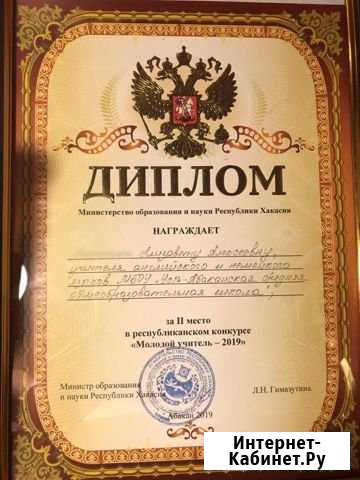 ДИПЛОМ
Министерство образования и науки Республики Хакасия
НАГРАЖДАЕТ
Елизавету Алексеевну,
учителя английского и немецкого
языков МБОУ "Усть-Абаканская средняя
общеобразовательная школа",
за II место
в республиканском конкурсе
«Молодой учитель – 2019»
Министр образования
и науки Республики Хакасия
Л.Н. Гимазутина
Абакан 2019
Интернет-
Кабинет.Ру